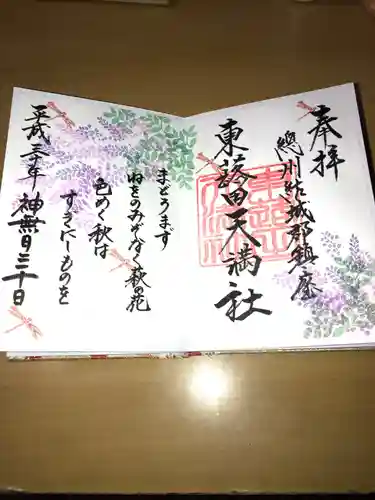 奉拝
總州結城郡鎮座
東蕗田天満社
まどろまず
ねをのみぞなく萩の花
色めく秋は
すぎにしものを
平成三十年
神無月三十日